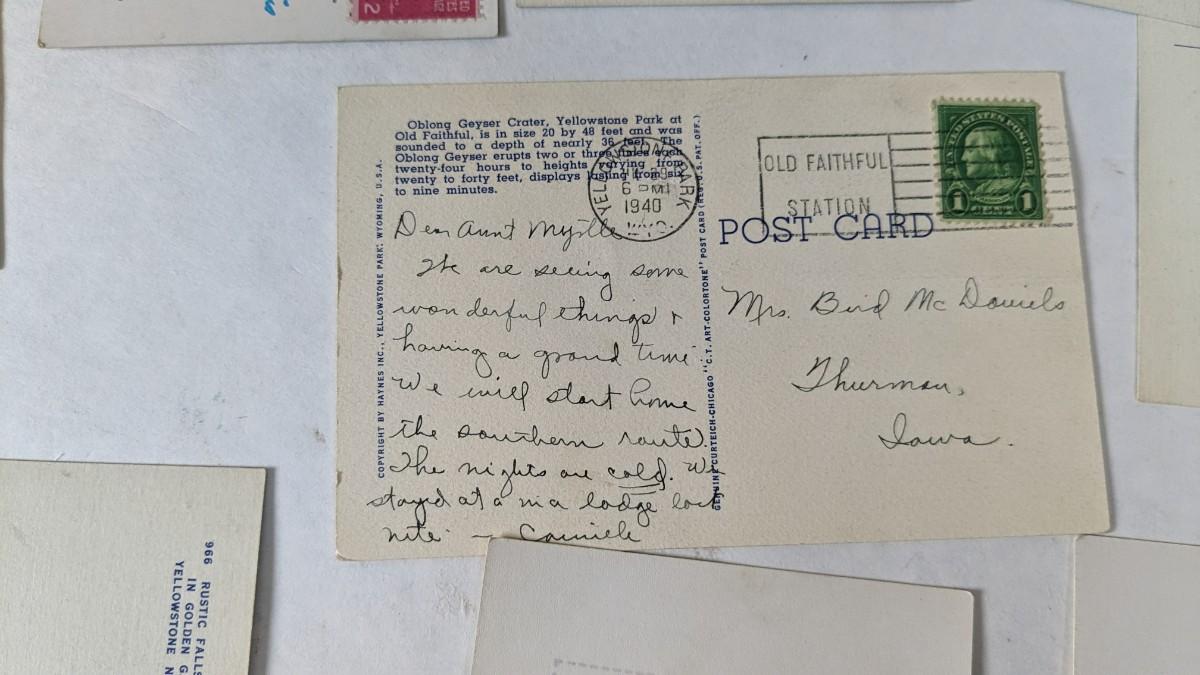 2
Oblong Geyser Crater, Yellowstone Park at
Old Faithful, is in size 20 by 48 feet and was
sounded to a depth of nearly 36 feet. The
Oblong Geyser erupts two or three times each
twenty-four hours to heights varying from
twenty to forty feet, displays lasting from six
to nine minutes.
YELLOWSTONE PARK
6 PM
1940
WYO.
OLD FAITHFUL
STATION
UNITED STATES POSTAGE
1 CENT 1
POST CARD
COPYRIGHT BY HAYNES INC., YELLOWSTONE PARK, WYOMING, U.S.A.
GENUINE CURTEICH-CHICAGO "C.T. ART-COLORTONE" POST CARD (REG. U.S. PAT. OFF.)
Dear Aunt Myrtle
We are seeing some
wonderful things +
having a grand time
We will start home
the southern route.
The nights are cold. We
stayed at a in a lodge last
nite —
Mrs. Bird McDaniels
Thurman,
Iowa.
966 RUSTIC FALLS
IN GOLDEN G
YELLOWSTONE N